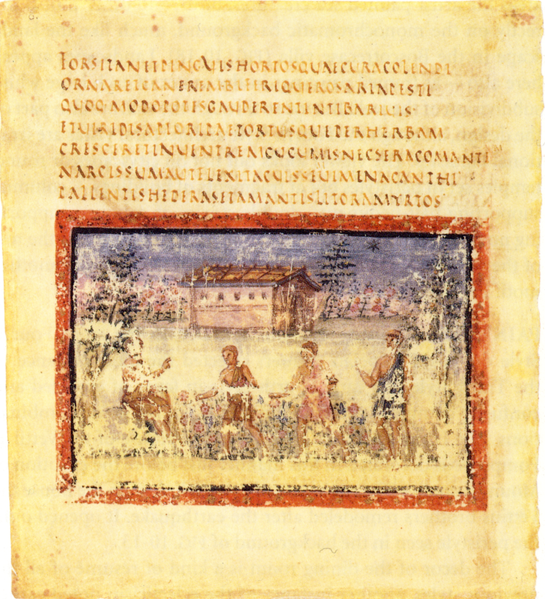 FORSITANETPINGVISHORTOSQVAECVRACOLENDI
ORNARETCANEREMBIFERIQVEROSARIAPESTI
QVOQ·MODOPOTISGAVDERENTINTIBARIVIS
ETVIRIDISAPIORIPAETORTVSQVEPERHERBAM
CRESCERETINVENTREMCVCVMISNECSERACOMANTE
NARCISSVMAVTFLEXITACVISSEVIMENACANTHI
PALLENTISHEDERASETAMANTISLITORAMYRTOS